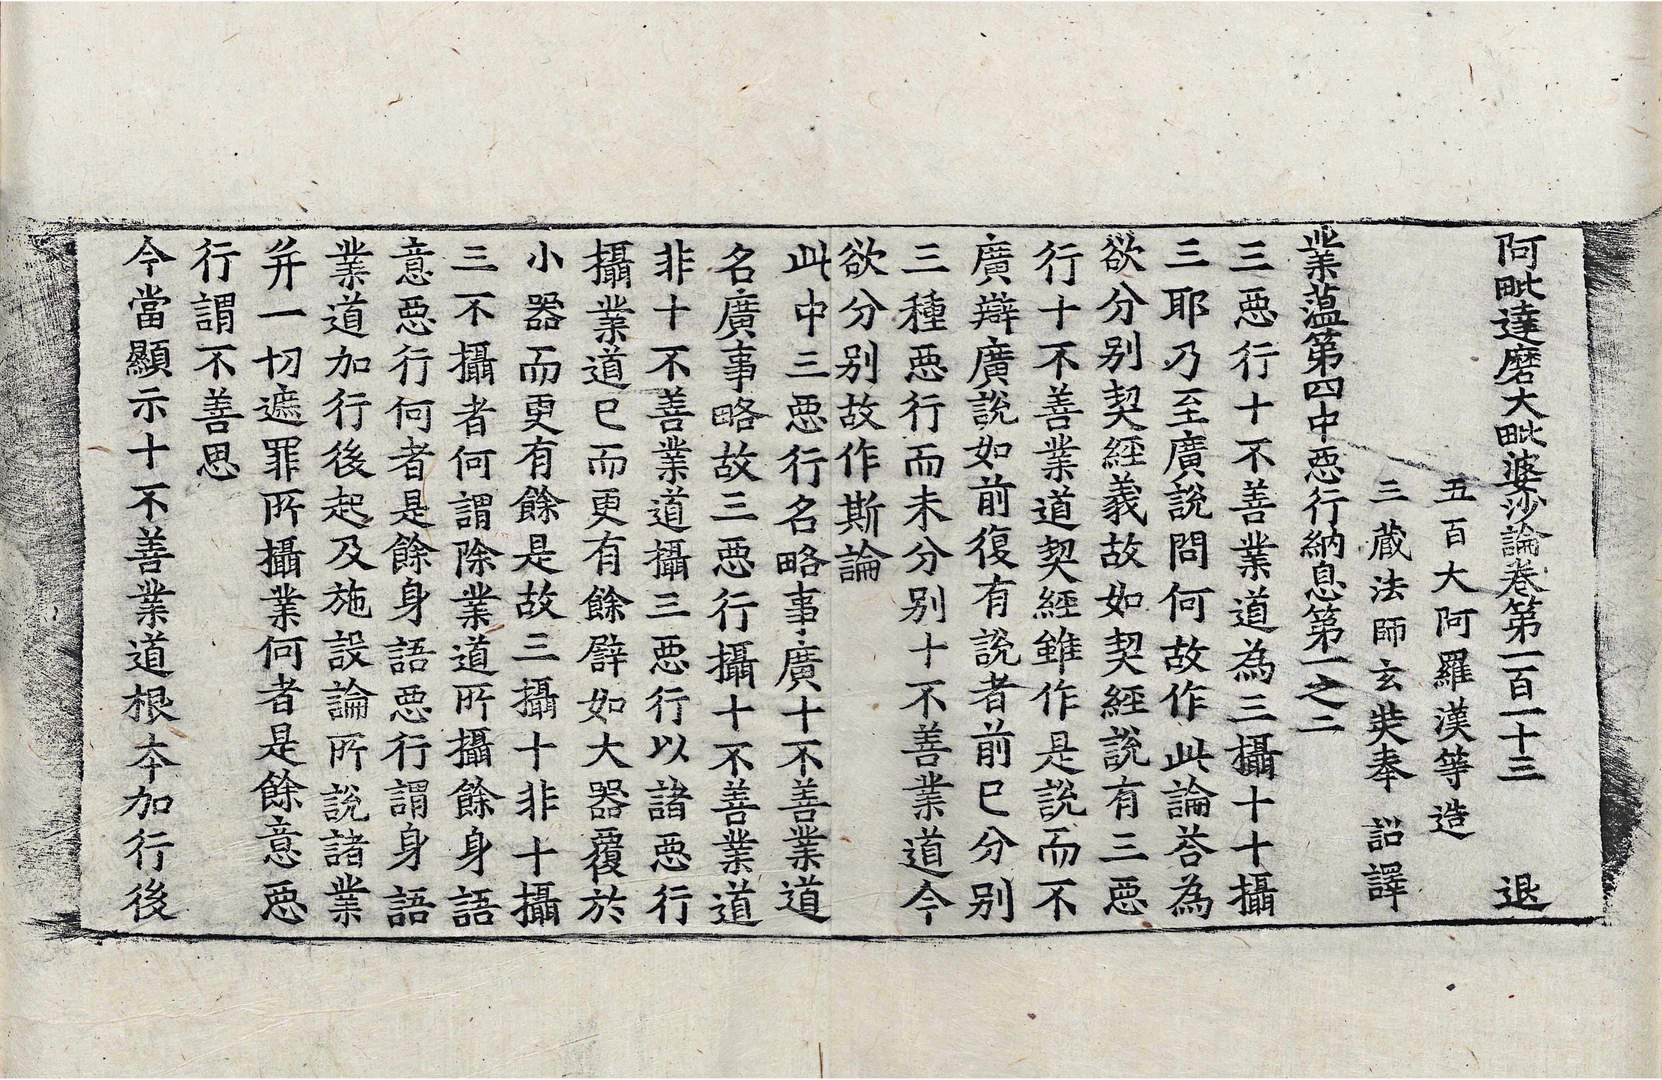 阿毗達磨大毗婆沙論卷第一百一十三 退
五百大阿羅漢等造
三藏法師玄奘奉 詔譯
業蘊第四中惡行納息第一之二
三惡行十不善業道為三攝十十攝
三耶乃至廣說問何故作此論荅為
欲分別契經義故如契經說有三惡
行十不善業道契經雖作是說而不
廣辯廣說如前復有說者前已分別
三種惡行而未分別十不善業道今
欲分別故作斯論
此中三惡行名略事廣十不善業道
名廣事略故三惡行攝十不善業道
非十不善業道攝三惡行以諸惡行
攝業道已而更有餘譬如大器覆於
小器而更有餘是故三攝十非十攝
三不攝者何謂除業道所攝餘身語
意惡行何者是餘身語惡行謂身語
業道加行後起及施設論所說諸業
并一切遮罪所攝業何者是餘意惡
行謂不善思
今當顯示十不善業道根本加行後